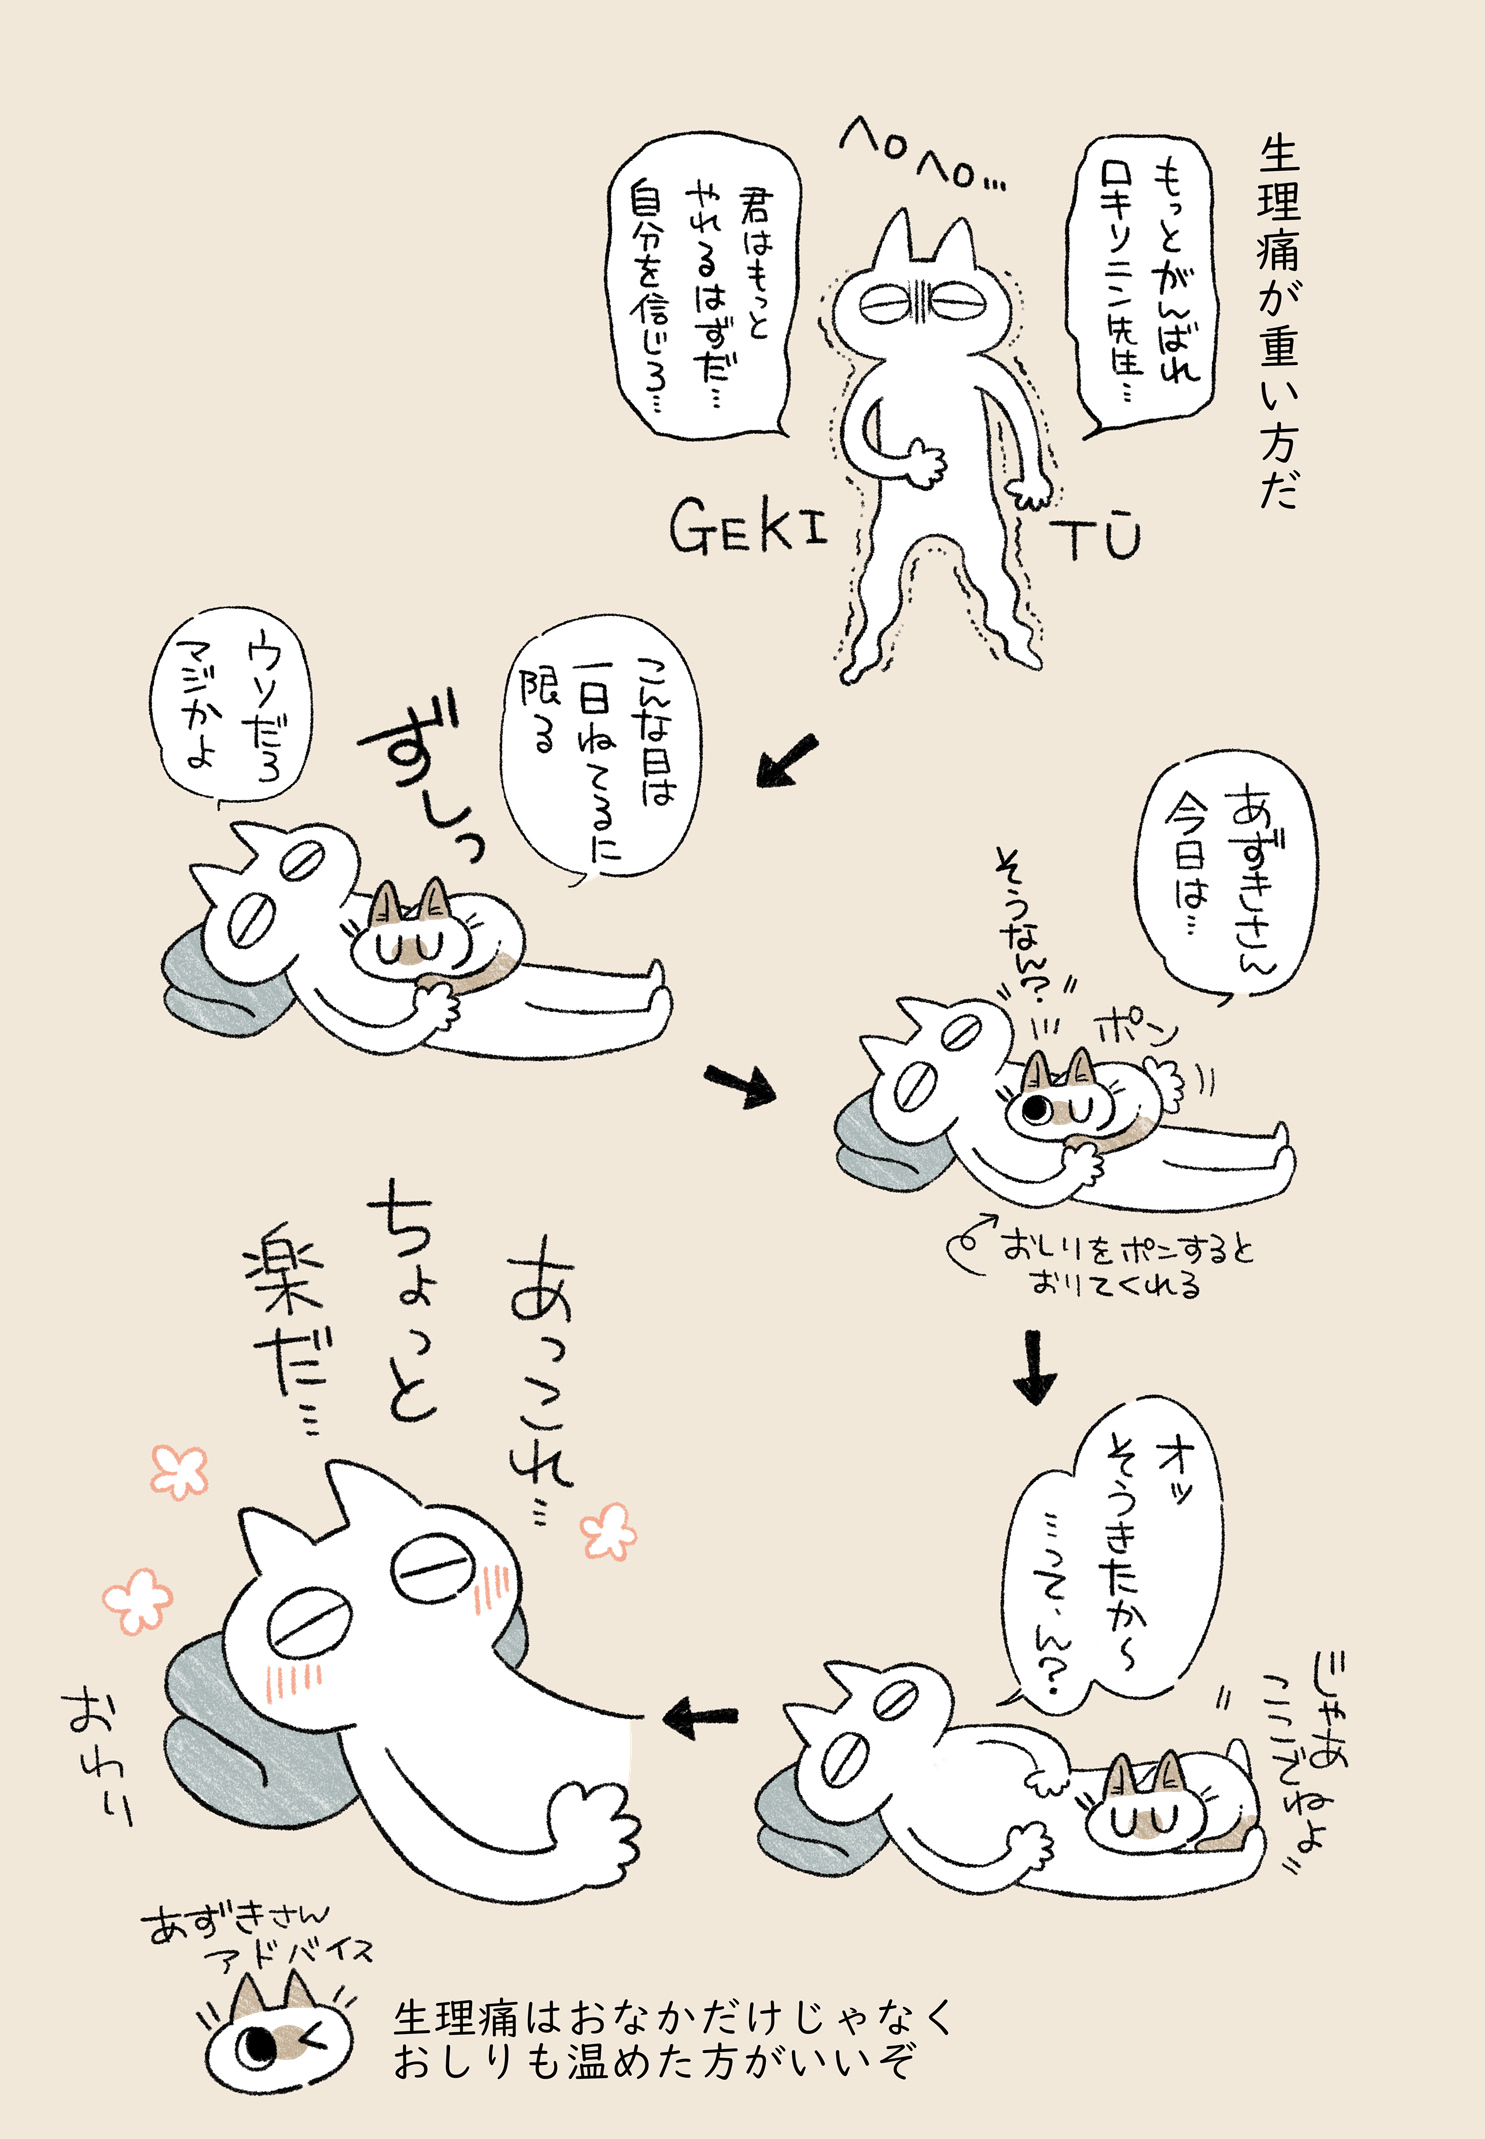 生理痛が重い方だ
もっとがんばれ
ロキソニン先生…
ヘロヘロ…
君はもっと
やれるはずだ…
自分を信じろ…
GEKI
TŪ
こんな日は
一日ねてるに
限る
ずしっ
ウソだろ
マジかよ
あずきさん
今日は…
そうなん?
ポン
おしりをポンすると
おりてくれる
オッ
そうきたか〜
…って、ん?
じゃあ
ここでねよ
あっこれ…
ちょっと
楽だ…
おわり
あずきさん
アドバイス
生理痛はおなかだけじゃなく
おしりも温めた方がいいぞ